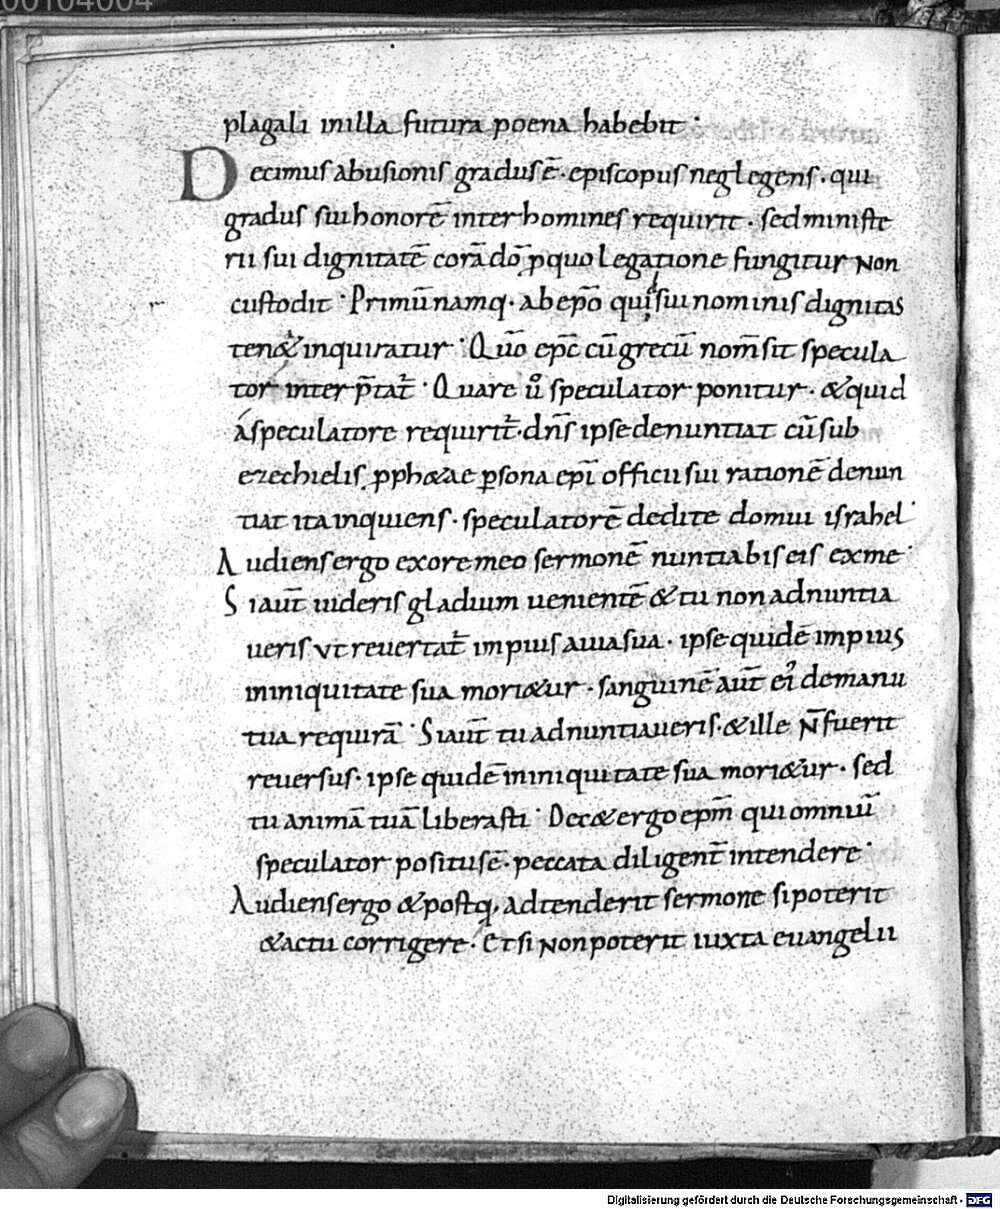 00104004
plagali inilla futura poena habebit·
Decimus abusionis gradus ē· episcopus neglegens· qui
gradus sui honorē inter homines requirit· sed ministe
rii sui dignitatē corā dō p quo legatione fungitur non
custodit· Primū namq· ab epō quisui nominis dignitas
ten& inquiratur· Quō epc̄ cū grecū nom̄ sit specula
tor inter p̄tat̄· Quare ū speculator ponitur· & quid
a speculatore requirit̄· dn̄s ipse denuntiat cū sub
ezechielis pph&ae psona epī officii sui rationē denun
tiat ita inquiens· speculatorē dedi te domui israhel·
Audiens ergo ex ore meo sermonē nuntiabis eis ex me·
Si aut̄ uideris gladium uenientē & tu non adnuntia
ueris ut reuertat̄ impius a uia sua· ipse quidē impius
in iniquitate sua mori&ur· sanguinē aut̄ ei demanu
tua requirā· Si aut̄ tu adnuntiaueris· & ille n̄ fuerit
reuersus· ipse quidē in iniquitate sua mori&ur· sed
tu animā tuā liberasti· Dec& ergo epm̄ qui omniū
speculator positus ē· peccata diligent̄ intendere·
Audiens ergo & postq, adtenderit sermone si poterit
& actu corrigere· Et si non poterit iuxta euangelii
Digitalisierung gefördert durch die Deutsche Forschungsgemeinschaft - DFG